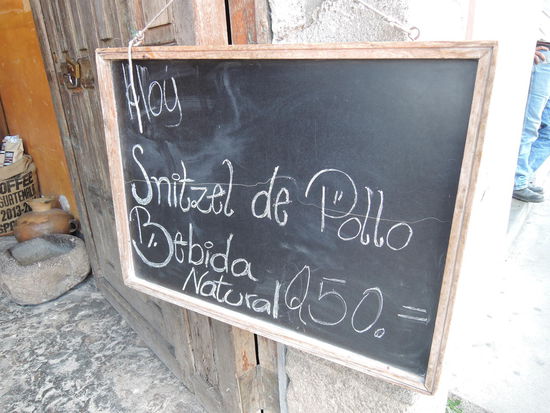 Hoy
Snitzel de Pollo
Bebida
Natural Q50.=
COFFEE
GUATEMALA